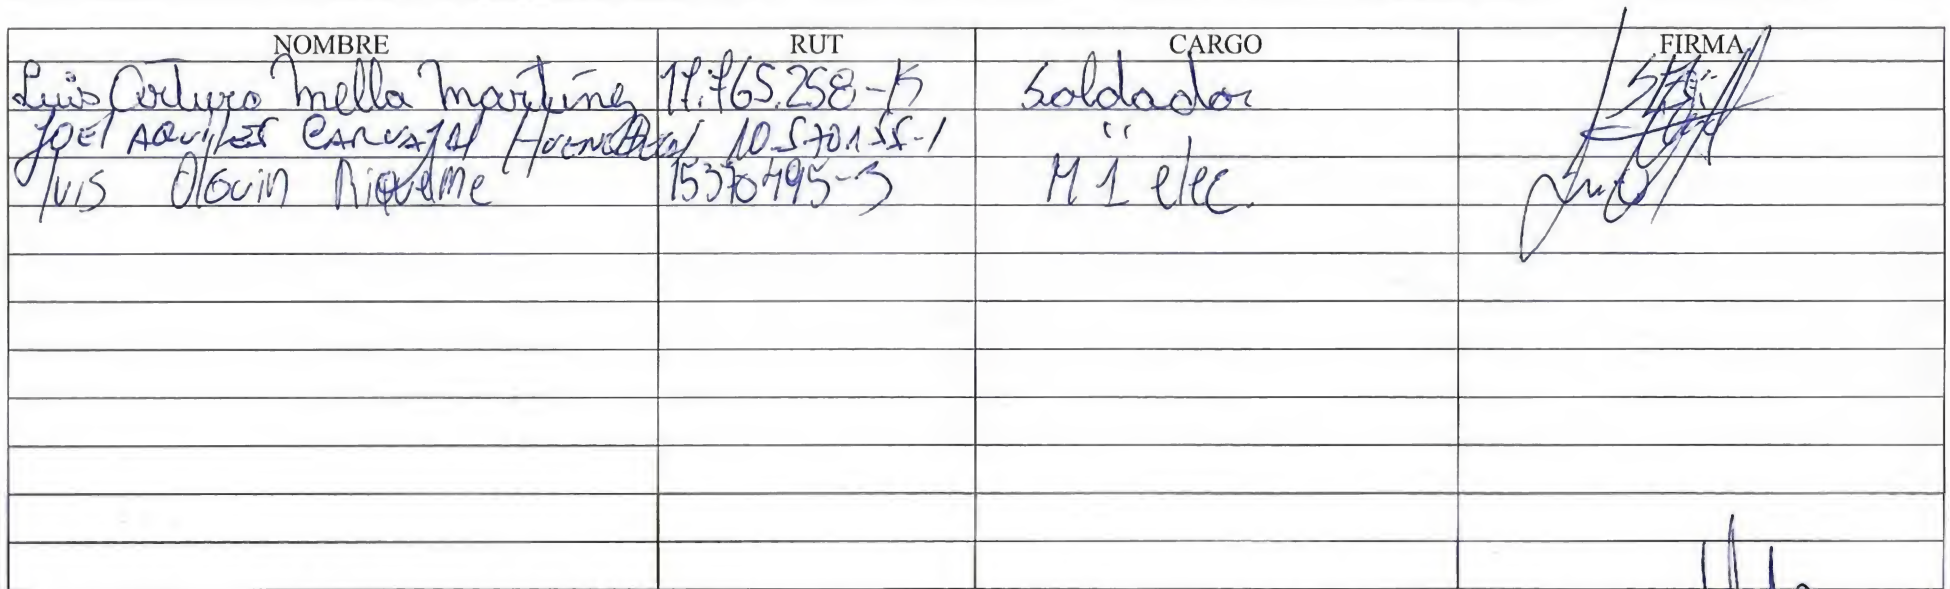 NOMBRE RUT CARGO FIRMA
Luis Arturo Mella Martínez 17.765.258-K Soldador
JOEl AQUILES CARVAJAl 10.570155-1 "
luis Olguin Riquelme 15370495-3 M 1 elec.